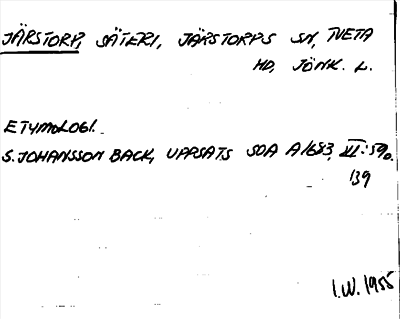 JÄRSTORP, SÄTERI, JÄRSTORPS SN, TVETA
HD, JÖNK. L.
ETYMOLOGI.
S. JOHANSSON BACK, UPPSATS SOA A 1683, XI:5
139
I.W. 1955